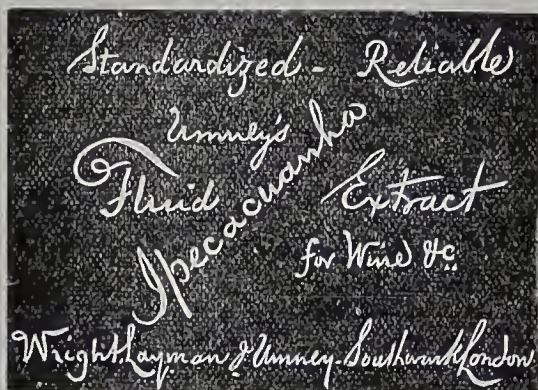 Standardized - Reliable
Umney's
Fluid Extract
Ipecacuanha
for Wine &c.
Wright, Layman & Umney. Southwark London